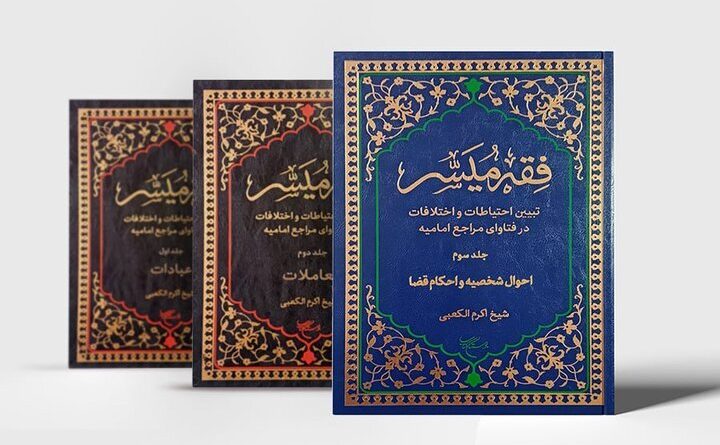 فقه میسّر
تبیین احتیاطات و اختلافات
در فتاوای مراجع امامیه
جلد سوم
احوال شخصیه و احکام قضا
شیخ اکرم الکعبی
میسّر
احتیاطات و اختلافات
مراجع امامیه
جلد دوم
معاملات
شیخ اکرم الکعبی
میسّر
احتیاطات و اختلافات
مراجع امامیه
جلد اول
عبادات
شیخ اکرم الکعبی